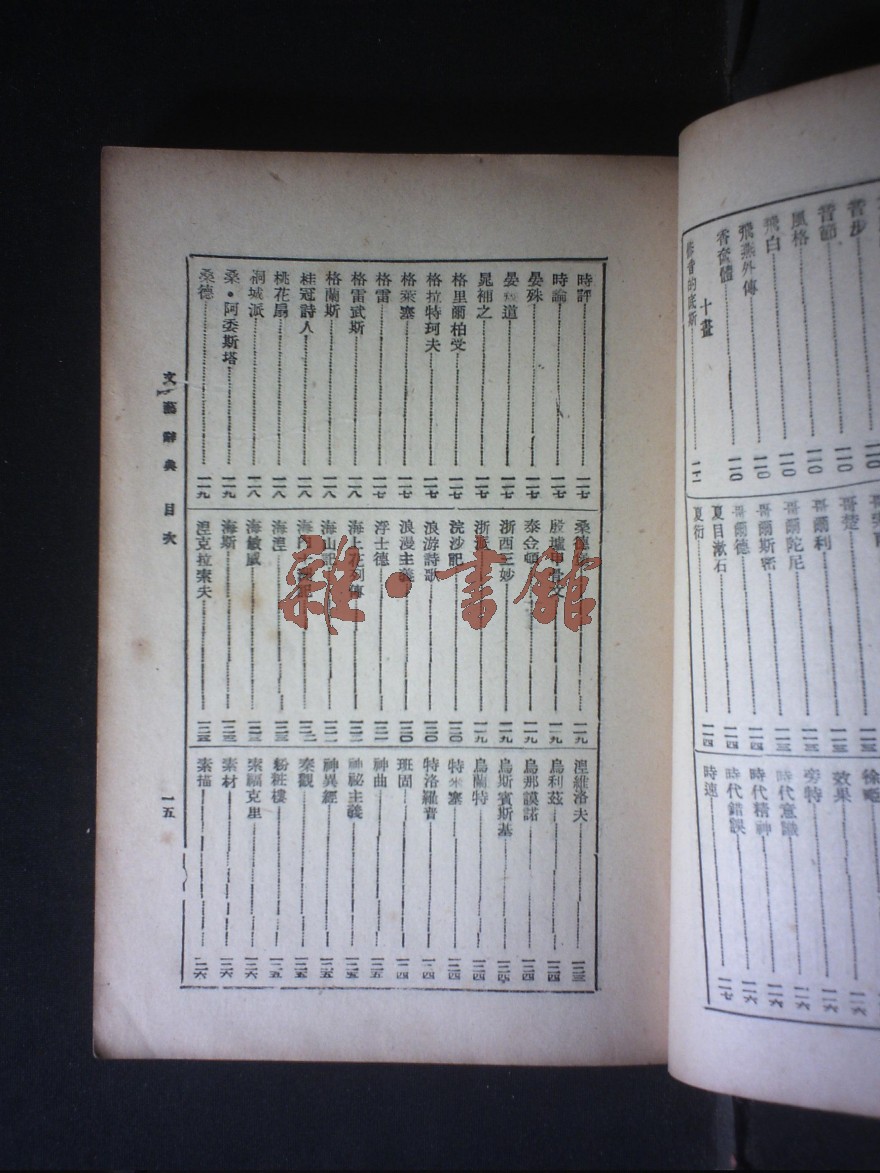 時評……一一七
時論……一一七
晏殊……一一七
晏 道……一一七
晁補之……一一七
格里爾柏受……一一七
格拉特珂夫……一一七
格萊塞……一一七
格雷……一一七
格雷武斯……一一八
格蘭斯……一一八
桂冠詩人……一一八
桃花扇……一一八
桐城派……一一八
桑·阿委斯塔……一一九
桑德……一一九
桑德……一一九
殷墟甲骨文……一一九
泰金頓……一一九
浙西三妙……一一九
浙派……一一九
浣沙記……一二〇
浪游詩歌……一二〇
浪漫主義……一二〇
浮士德……一二一
海上花列傳
海山記……一二一
海涅
海敏威
海斯
涅克拉索夫
涅維洛夫……一二三
烏利茲……一二四
烏那謨諾……一二四
烏斯賓斯基……一二四
烏蘭特……一二四
特米塞……一二四
特洛羅普……一二四
班固……一二四
神曲……一二五
神祕主義……一二五
神異經……一二五
粉粧樓……一二五
索福克里……一二六
素材……一二六
素描……一二六
文藝辭典 目次
一五
雜·書館
音步……一一〇
音節……一一〇
風格……一一〇
飛白……一一〇
飛燕外傳……一一〇
香奩體……一一〇
十畫
哥楚
哥爾利
哥爾陀尼
哥爾斯密
哥爾德……一一四
夏目漱石……一一四
夏衍……一一四
效果……一一六
旁特……一一六
時代意識……一一六
時代精神……一一六
時代錯誤……一一六
時速……一一七